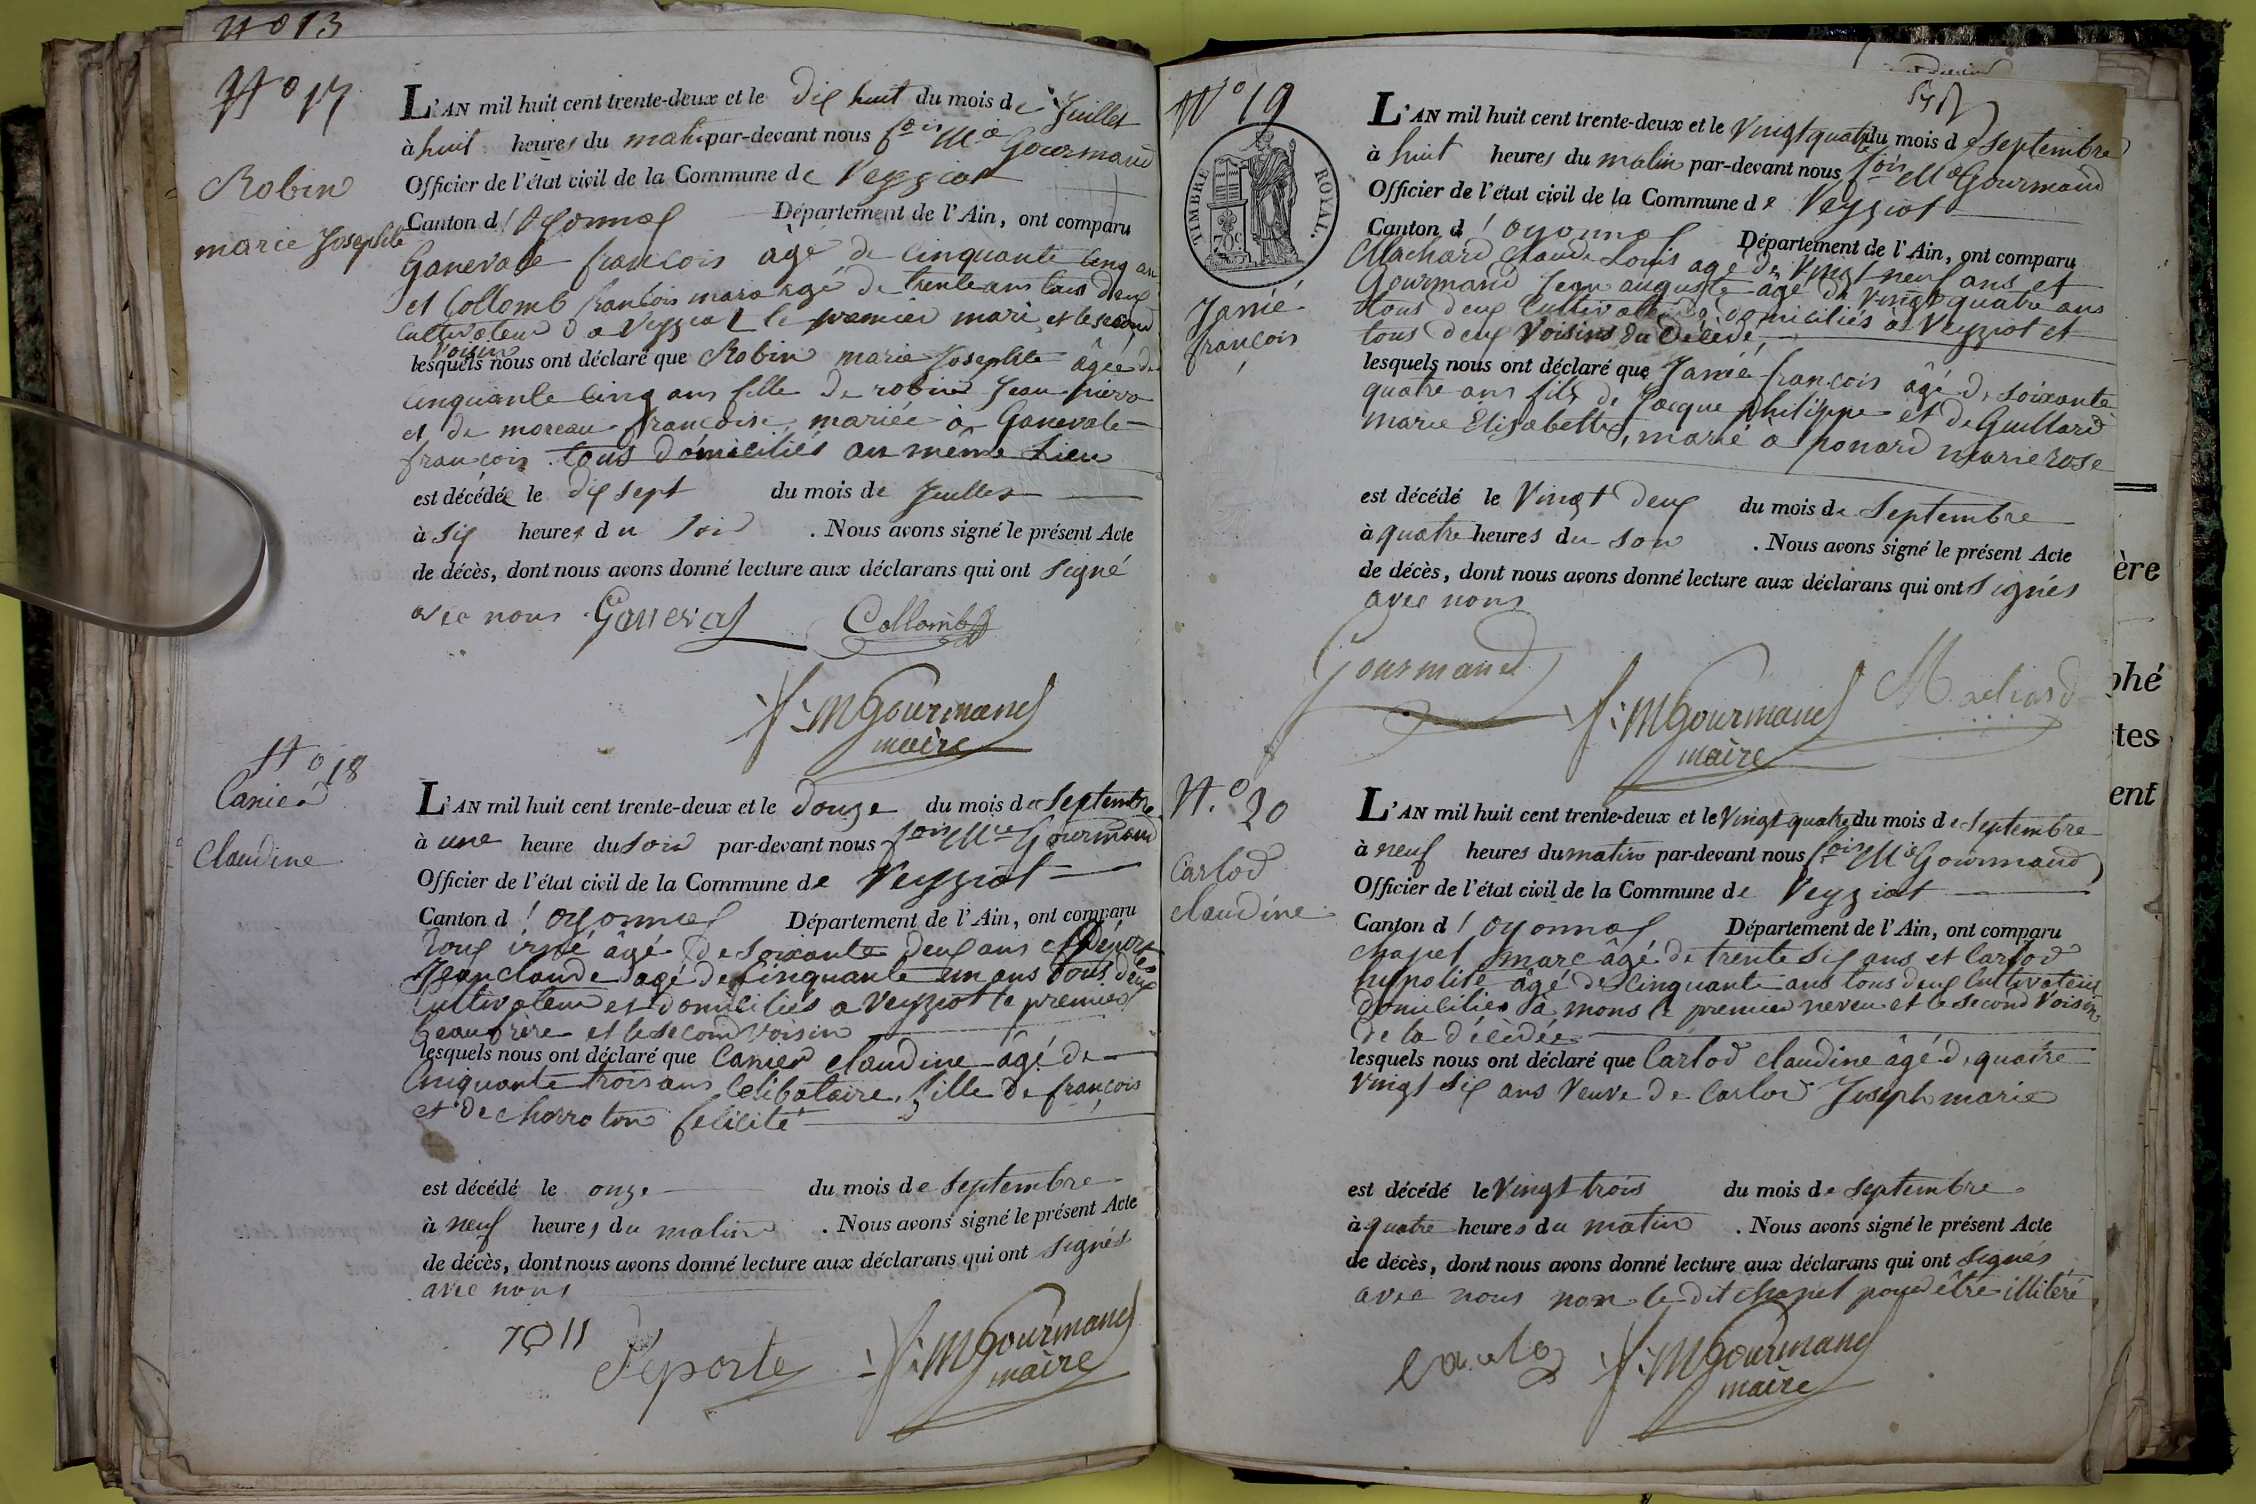 N° 13
N° 17
Robin
marie Josephte
L'AN mil huit cent trente-deux et le dix huit du mois de Juillet
à huit heures du matin par-devant nous f.ois M.ie Gourmand
Officier de l'état civil de la Commune de Veyziat
Canton d'Oyonnax Département de l'Ain, ont comparu
Ganevale francois âgé de cinquante cinq an
et Collomb francois marc agé de trente ans tous deux
Cultivateur d a Veyziat le premier mari et le second
Voisin
lesquels nous ont déclaré que Robin marie Josephte âgée de
cinquante cinq ans fille de robin Jean pierre
et de moreau francoise, mariée à Ganevale
francois tous domiciliés au même Lieu
est décédée le dix sept du mois de Juillet
à six heures du soir . Nous avons signé le présent Acte
de décès, dont nous avons donné lecture aux déclarans qui ont signé
avec nous Ganeval Collomb
f: M Gourmand
maire
N° 18
Canier
Claudine
L'AN mil huit cent trente-deux et le douze du mois de Septembre
à une heure du soir par-devant nous f.ois M.ie Gourmand
Officier de l'état civil de la Commune de Veyziat
Canton d'oyonnax Département de l'Ain, ont comparu
âgé de soixante deux ans et
Jean claude agé de Cinquante un ans tous deux
Cultivateur et domiciliés a Veyziat le premier
beaufrère et le second voisin
lesquels nous ont déclaré que Canier claudine âgé de
Cinquante trois ans Celibataire, fille de françois
et de charroton felicité
est décédé le onze du mois de septembre
à neuf heures du matin . Nous avons signé le présent Acte
de décès, dont nous avons donné lecture aux déclarans qui ont signés
avec nous
f: M Gourmand
maire
N° 19
TIMBRE ROYAL.
Janié
françois
L'AN mil huit cent trente-deux et le Vingt quatre du mois de septembre
à huit heures du matin par-devant nous f.ois M.ie Gourmand
Officier de l'état civil de la Commune de Veyziat
Canton d'oyonnax Département de l'Ain, ont comparu
Machard Claude Louis age de Vingt neuf ans et
Gourmand Jean auguste âgé de vingt quatre ans
tous deux Cultivateurs domiciliés à Veyziat et
tous deux Voisins du Décédé,
lesquels nous ont déclaré que Janié françois âgé de soixante
quatre ans fils de Jacque philippe et de Guillard
marie Elisabette, marié à ponard marie rose
est décédé le Vingt deux du mois de Septembre
à quatre heures du soir . Nous avons signé le présent Acte
de décès, dont nous avons donné lecture aux déclarans qui ont signés
avec nous
Gourmand f: M Gourmand Machard
maire
N.° 20
Carlod
claudine
L'AN mil huit cent trente-deux et le Vingt quatre du mois de Septembre
à neuf heures du matin par-devant nous f.ois M.ie Gourmand
Officier de l'état civil de la Commune de Veyziat
Canton d'oyonnax Département de l'Ain, ont comparu
chapel marc âgé de trente six ans et Carlod
hypolite âgé de cinquante ans tous deux Cultivateurs
domiciliés à mons le premier neveu et le second Voisin
de la décédée
lesquels nous ont déclaré que Carlod claudine âgé de quatre
Vingt six ans Veuve de Carlod Joseph marie
est décédé le Vingt trois du mois de septembre
à quatre heures du matin . Nous avons signé le présent Acte
de décès, dont nous avons donné lecture aux déclarans qui ont signés
avec nous non le dit chapel pour être illitéré
f: M Gourmand
maire
ère
phé
tes
ent